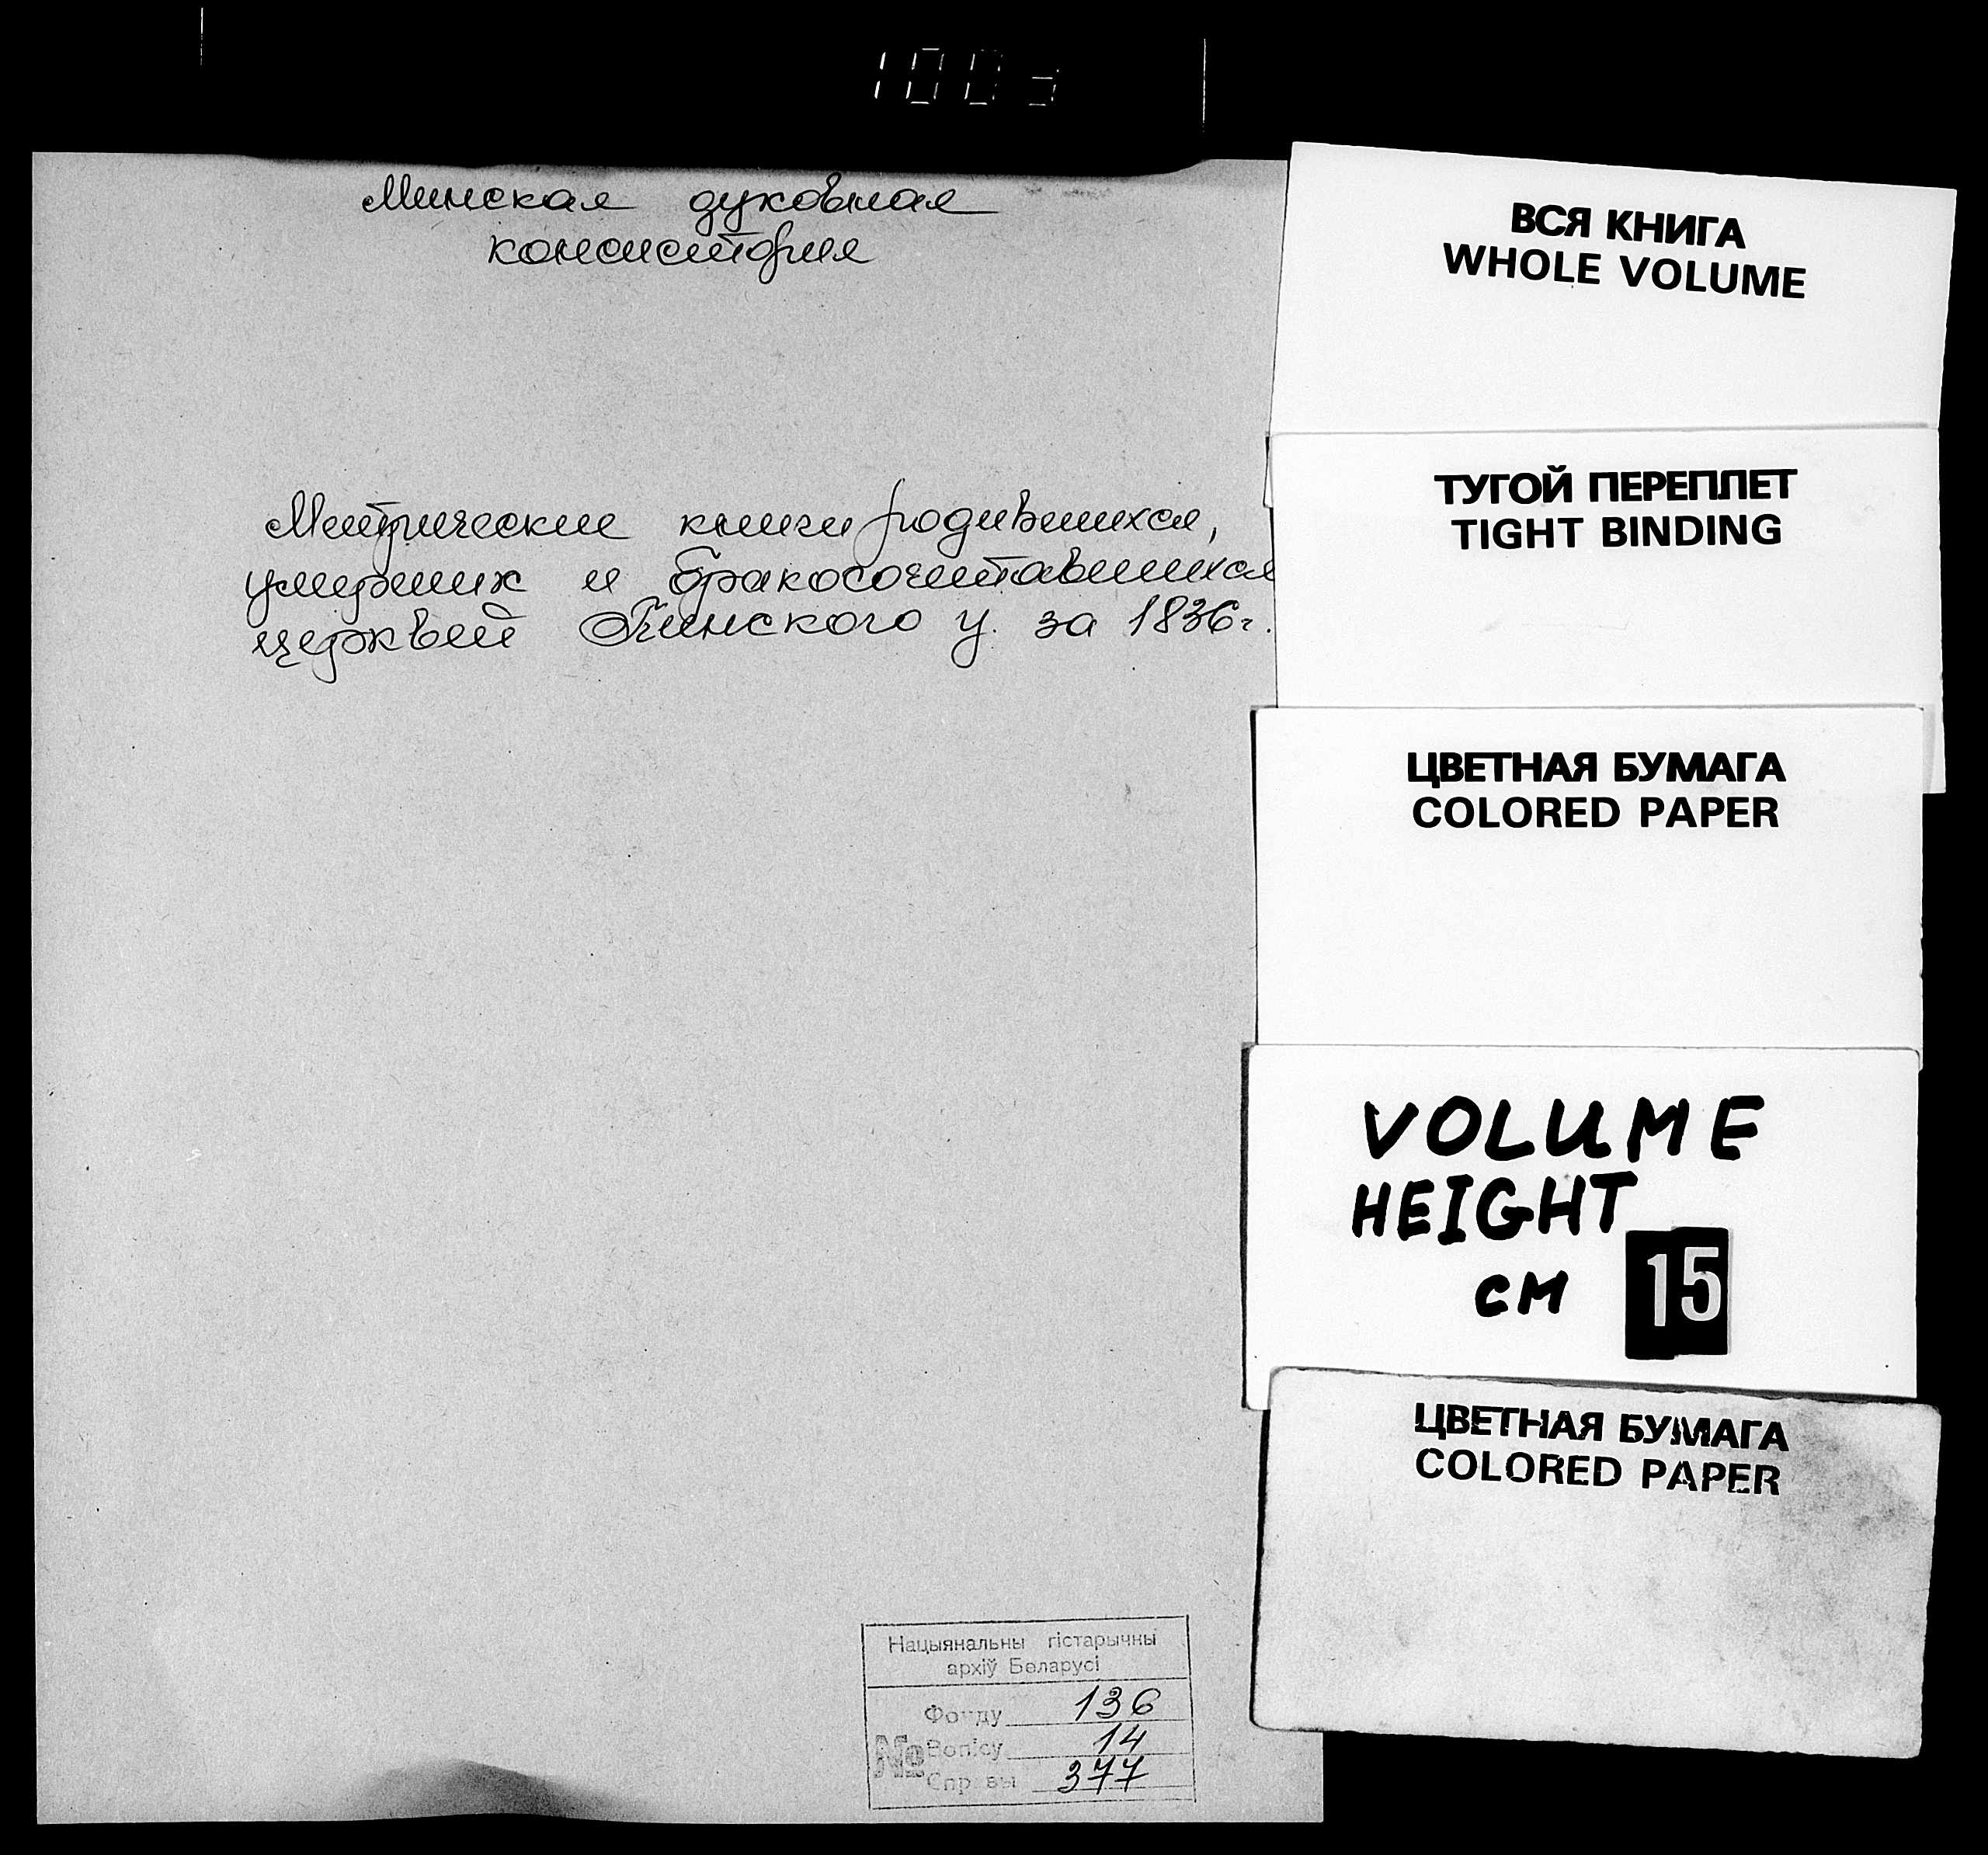 Минская духовная
консистория
Метрические книги родившихся,
умерших и бракосочетавшихся
церквей Пинского у. за 1836г.
Нацыянальны гістарычны
архіў Беларусі
Фонду 136
№ Вопісу 14
Справы 377
ВСЯ КНИГА
WHOLE VOLUME
ТУГОЙ ПЕРЕПЛЕТ
TIGHT BINDING
ЦВЕТНАЯ БУМАГА
COLORED PAPER
VOLUME
HEIGHT
CM 15
ЦВЕТНАЯ БУМАГА
COLORED PAPER